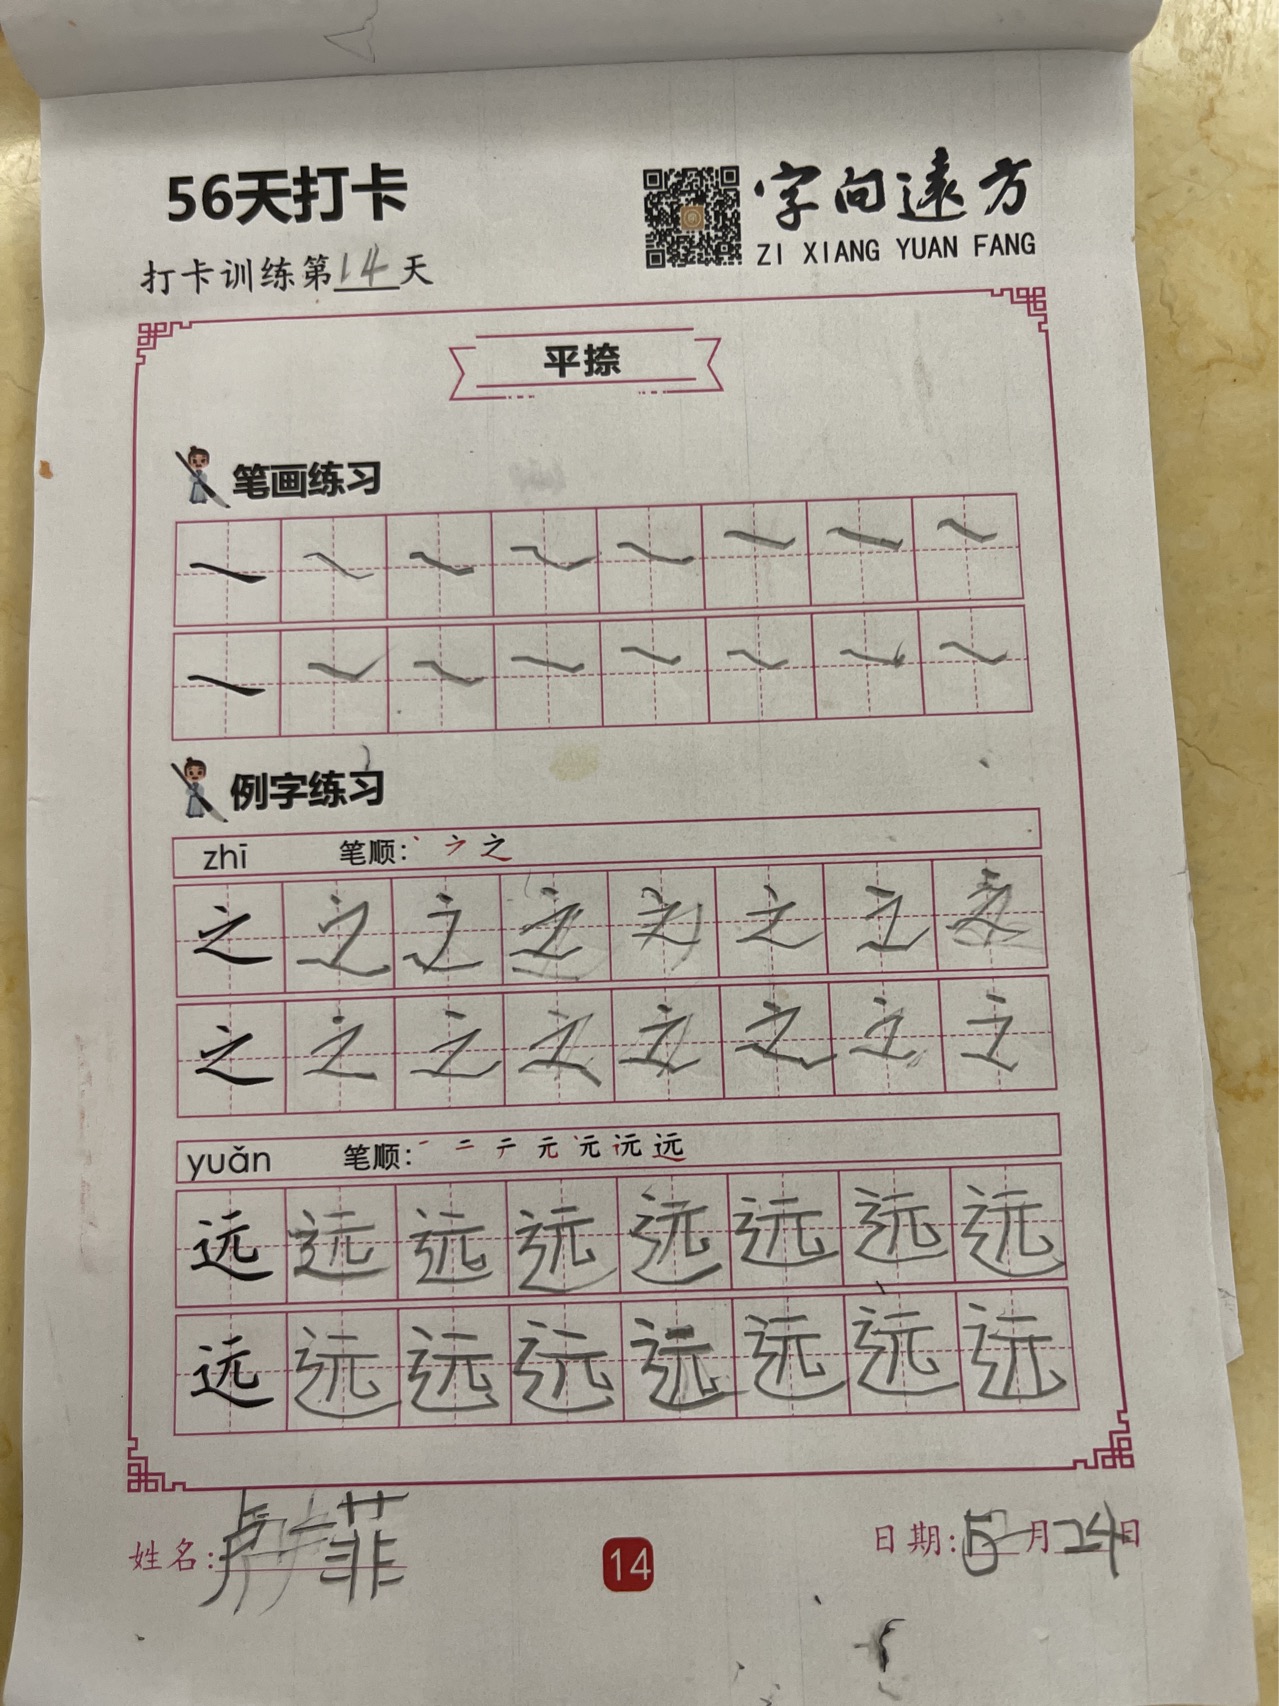 56天打卡
字向遠方
ZI XIANG YUAN FANG
打卡训练第14天
平捺
笔画练习
㇏ ㇏ ㇏ ㇏ ㇏ ㇏ ㇏ ㇏
㇏ ㇏ ㇏ ㇏ ㇏ ㇏ ㇏ ㇏
例字练习
zhī 笔顺: 之
之 之 之 之 之 之 之 之
之 之 之 之 之 之 之 之
yuǎn 笔顺: 一 二 テ 元 远
远 远 远 远 远 远 远 远
远 远 远 远 远 远 远 远
姓名: 卢一菲
14
日期: 5月24日